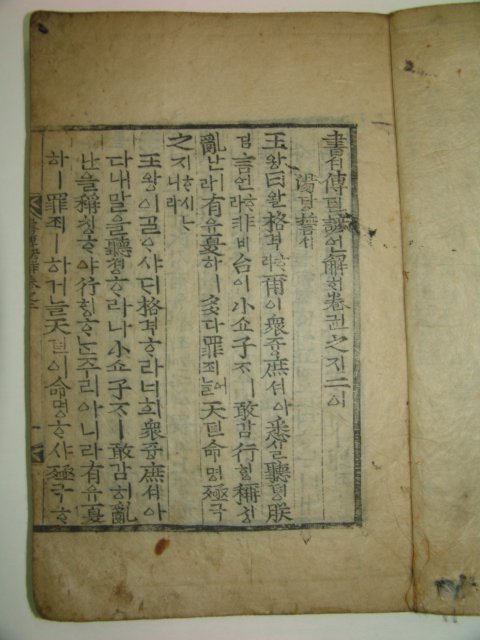 書셔傳젼諺언解ᄒᆡ卷권之지二이
湯탕誓셔
王왕曰왈格격ᄒᆞ라爾이衆즁庶셔아悉실聽텽朕
딤言언ᄒᆞ라非비台이小쇼子ᄌᆞㅣ敢감行ᄒᆡᆼ稱칭
亂난이라有유夏하ㅣ多다罪죄어ᄂᆞᆯ天텬命명殛극
之지ᄒᆞ시ᄂᆞ니라
王왕이ᄀᆞᆯᄋᆞ샤ᄃᆡ格격ᄒᆞ라너희衆즁庶셔아
다내말을聽텽ᄒᆞ라나小쇼子ᄌᆞㅣ敢감히亂
난을稱칭ᄒᆞ야行ᄒᆡᆼᄒᆞᄂᆞᆫ주리아니라有유夏
하ㅣ罪죄ㅣ하거늘天텬이命명ᄒᆞ샤殛극ᄒᆞ